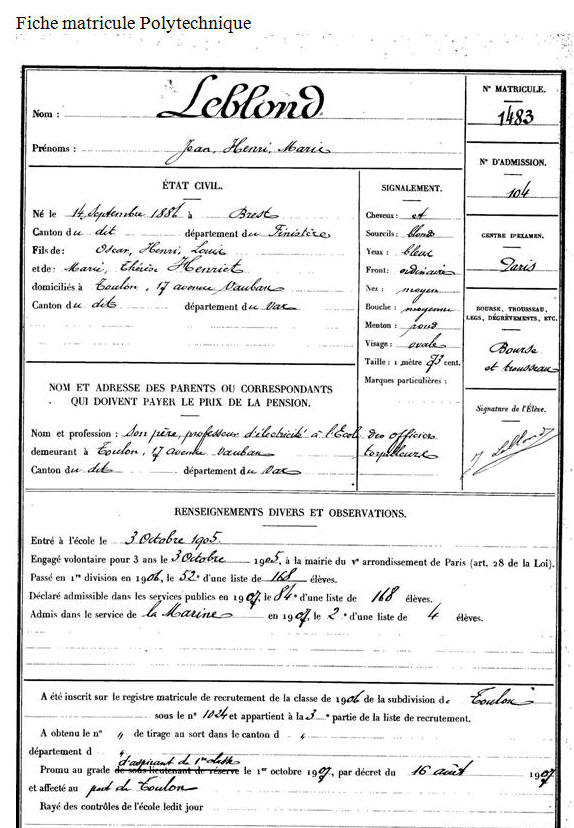 Fiche matricule Polytechnique
Nom : Leblond
Prénoms : Jean, Henri, Marie
N° MATRICULE.
1483
N° D'ADMISSION.
104
CENTRE D'EXAMEN.
Paris
BOURSE, TROUSSEAU,
LEGS, DÉGRÈVEMENTS, ETC.
Bourse
et trousseau
Signature de l'Élève.
J Leblond
ÉTAT CIVIL.
Né le 14 Septembre 1886 à Brest
Canton du dit département du Finistère
Fils de : Oscar, Henri, Louis
et de : Marie, Thérèse Henriet
domiciliés à Toulon, 17 avenue Vauban
Canton du dit département du Var
SIGNALEMENT.
Cheveux : et
Sourcils : blonds
Yeux : bleus
Front : ordinaire
Nez : moyen
Bouche : moyenne
Menton : rond
Visage : ovale
Taille : 1 mètre 73 cent.
Marques particulières :
NOM ET ADRESSE DES PARENTS OU CORRESPONDANTS
QUI DOIVENT PAYER LE PRIX DE LA PENSION.
Nom et profession : Son père, professeur d'électricité à l'Ecole des officiers
demeurant à Toulon, 17 avenue Vauban torpilleurs
Canton du dit département du Var
RENSEIGNEMENTS DIVERS ET OBSERVATIONS.
Entré à l'école le 3 Octobre 1905.
Engagé volontaire pour 3 ans le 3 Octobre 1905, à la mairie du Vᵉ arrondissement de Paris (art. 28 de la Loi).
Passé en 1ʳᵉ division en 1906, le 52ᵉ d'une liste de 168 élèves.
Déclaré admissible dans les services publics en 1907, le 84ᵉ d'une liste de 168 élèves.
Admis dans le service de la Marine en 1907, le 2ᵉ d'une liste de 4 élèves.
A été inscrit sur le registre matricule de recrutement de la classe de 1906 de la subdivision de Toulon
sous le n° 1024 et appartient à la 3ᵉ partie de la liste de recrutement.
A obtenu le n° " de tirage au sort dans le canton d "
département d "
d'aspirant de 1ʳᵉ classe
Promu au grade de sous-lieutenant de réserve le 1ᵉʳ octobre 1907, par décret du 16 août 1907
et affecté au port de Toulon
Rayé des contrôles de l'école ledit jour